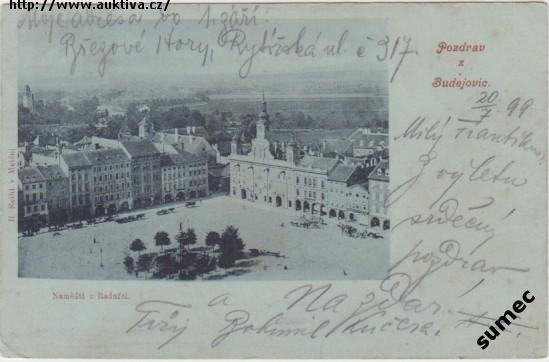 http://www.auktiva.cz/
Moje adresa do 1. září:
Březové Hory, Rytířská ul. č 317
Pozdrav
z
Budejovic.
20/7 99
Milý Františku
Z výletu
srdečný
pozdrav
a Na zdar!
Tvůj Bohumil Kučera.
Naměští z Radnicí.
sumec